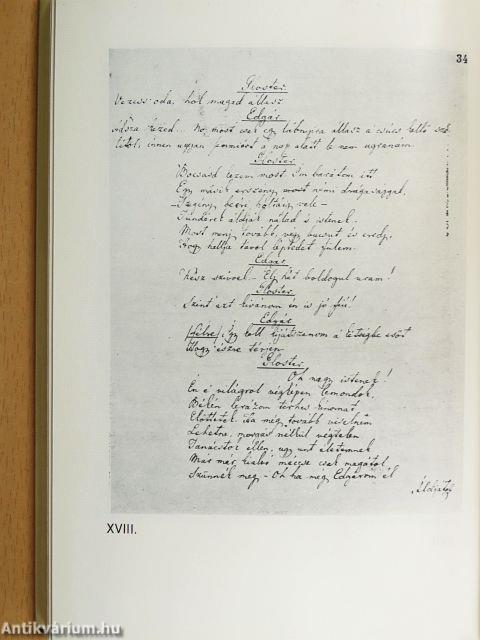 34
Gloster
Vezess oda, hol magad állasz
Edgár
Adsza kezed... No, most csak egy lábnyira állasz a csúcs kettő
létől, innen ugyan semmiért a nap alatt le nem ugranám.
Gloster
Bocsásd kezem most Im barátom itt
Egy másik erszény most nemi drágasággal,
Szegény beéri holtáig vele –
Tündérek áldják nálad s istenek.
Most menj tovább, végy bucsut, és eredj,
Hogy halljа távol léptedet fülem.
Edgár
Kész szivvel. – Élj hát boldogul uram!
Gloster
Szint azt kivánom én is jó fiú!
Edgár
(félre) Igy kell kijátszanom a kétségbe esőt
Hogy észre térjen
Gloster
Oh nagy istenek!
Én e világrol végképen lemondok,
Békén lerázom terhes kinomat
Előttetek. Ha még tovább viselném
Lehetne, morgás nélkül végtelen
Tanácstok ellen, ugy unt életemnek
Már már kialvó mécse csak magátol
Szünnék meg – Oh ha még Edgárom él
Áldjátok
XVIII.
Antikvárium.hu